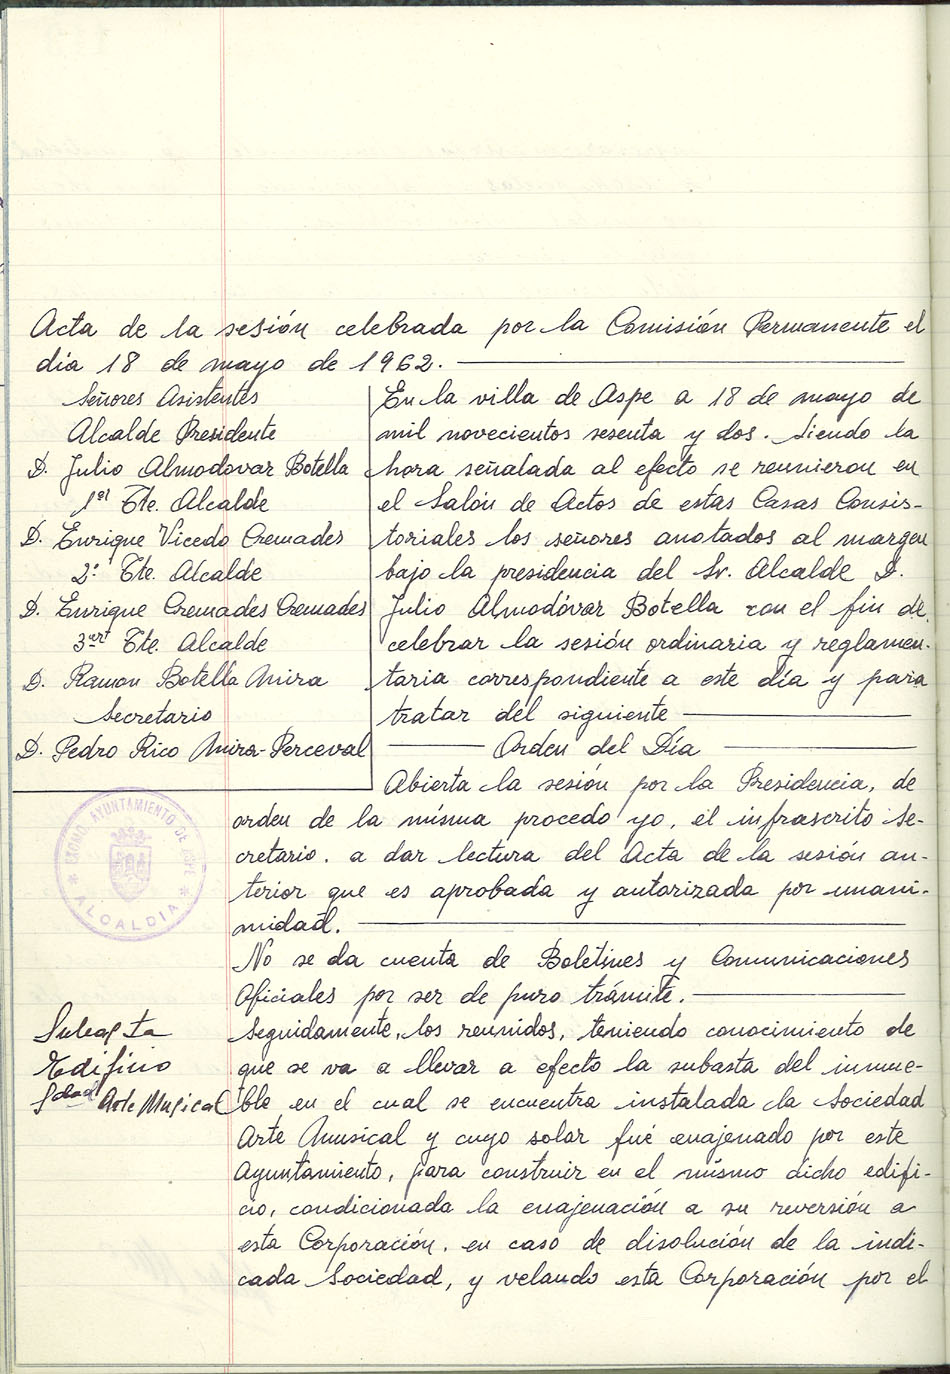 Acta de la sesión celebrada por la Comisión Permanente el
día 18 de mayo de 1962.
Señores Asistentes
Alcalde Presidente
D. Julio Almodovar Botella
1er Tte. Alcalde
D. Enrique Vicedo Cremades
2º Tte. Alcalde
D. Enrique Cremades Cremades
3er Tte. Alcalde
D. Ramon Botella Mira
Secretario
D. Pedro Rico Mira-Perceval
En la villa de Aspe a 18 de mayo de
mil novecientos sesenta y dos. Siendo la
hora señalada al efecto se reunieron en
el Salón de Actos de estas Casas Consis-
toriales los señores anotados al margen
bajo la presidencia del Sr. Alcalde D.
Julio Almodóvar Botella con el fin de
celebrar la sesión ordinaria y reglamen-
taria correspondiente a este día y para
tratar del siguiente
Orden del Día
Abierta la sesión por la Presidencia, de
orden de la misma procedo yo, el infrascrito Se-
cretario, a dar lectura del Acta de la sesión an-
terior que es aprobada y autorizada por unani-
midad.
No se da cuenta de Boletines y Comunicaciones
Oficiales por ser de puro trámite.
Seguidamente, los reunidos, teniendo conocimiento de
que se va a llevar a efecto la subasta del inmue-
ble, en el cual se encuentra instalada la Sociedad
Arte Musical y cuyo solar fué enajenado por este
Ayuntamiento, para construir en el mismo dicho edifi-
cio, condicionada la enajenación a su reversión a
esta Corporación, en caso de disolución de la indi-
cada Sociedad, y velando esta Corporación por el
CRDNO. AYUNTAMIENTO DE ASPE
* ALCALDIA *
Subasta
Edificio
Sdad Arte Musical